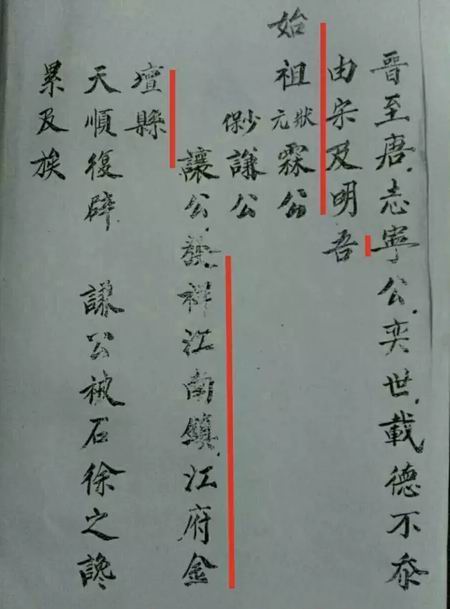 晉至唐志寧公奕世載德不忝
由宋及明吾
始祖狀元霖公
少保謙公
讓公發祥江南鎮江府金
壇縣
天順復辟 謙公被石徐之讒
累及族